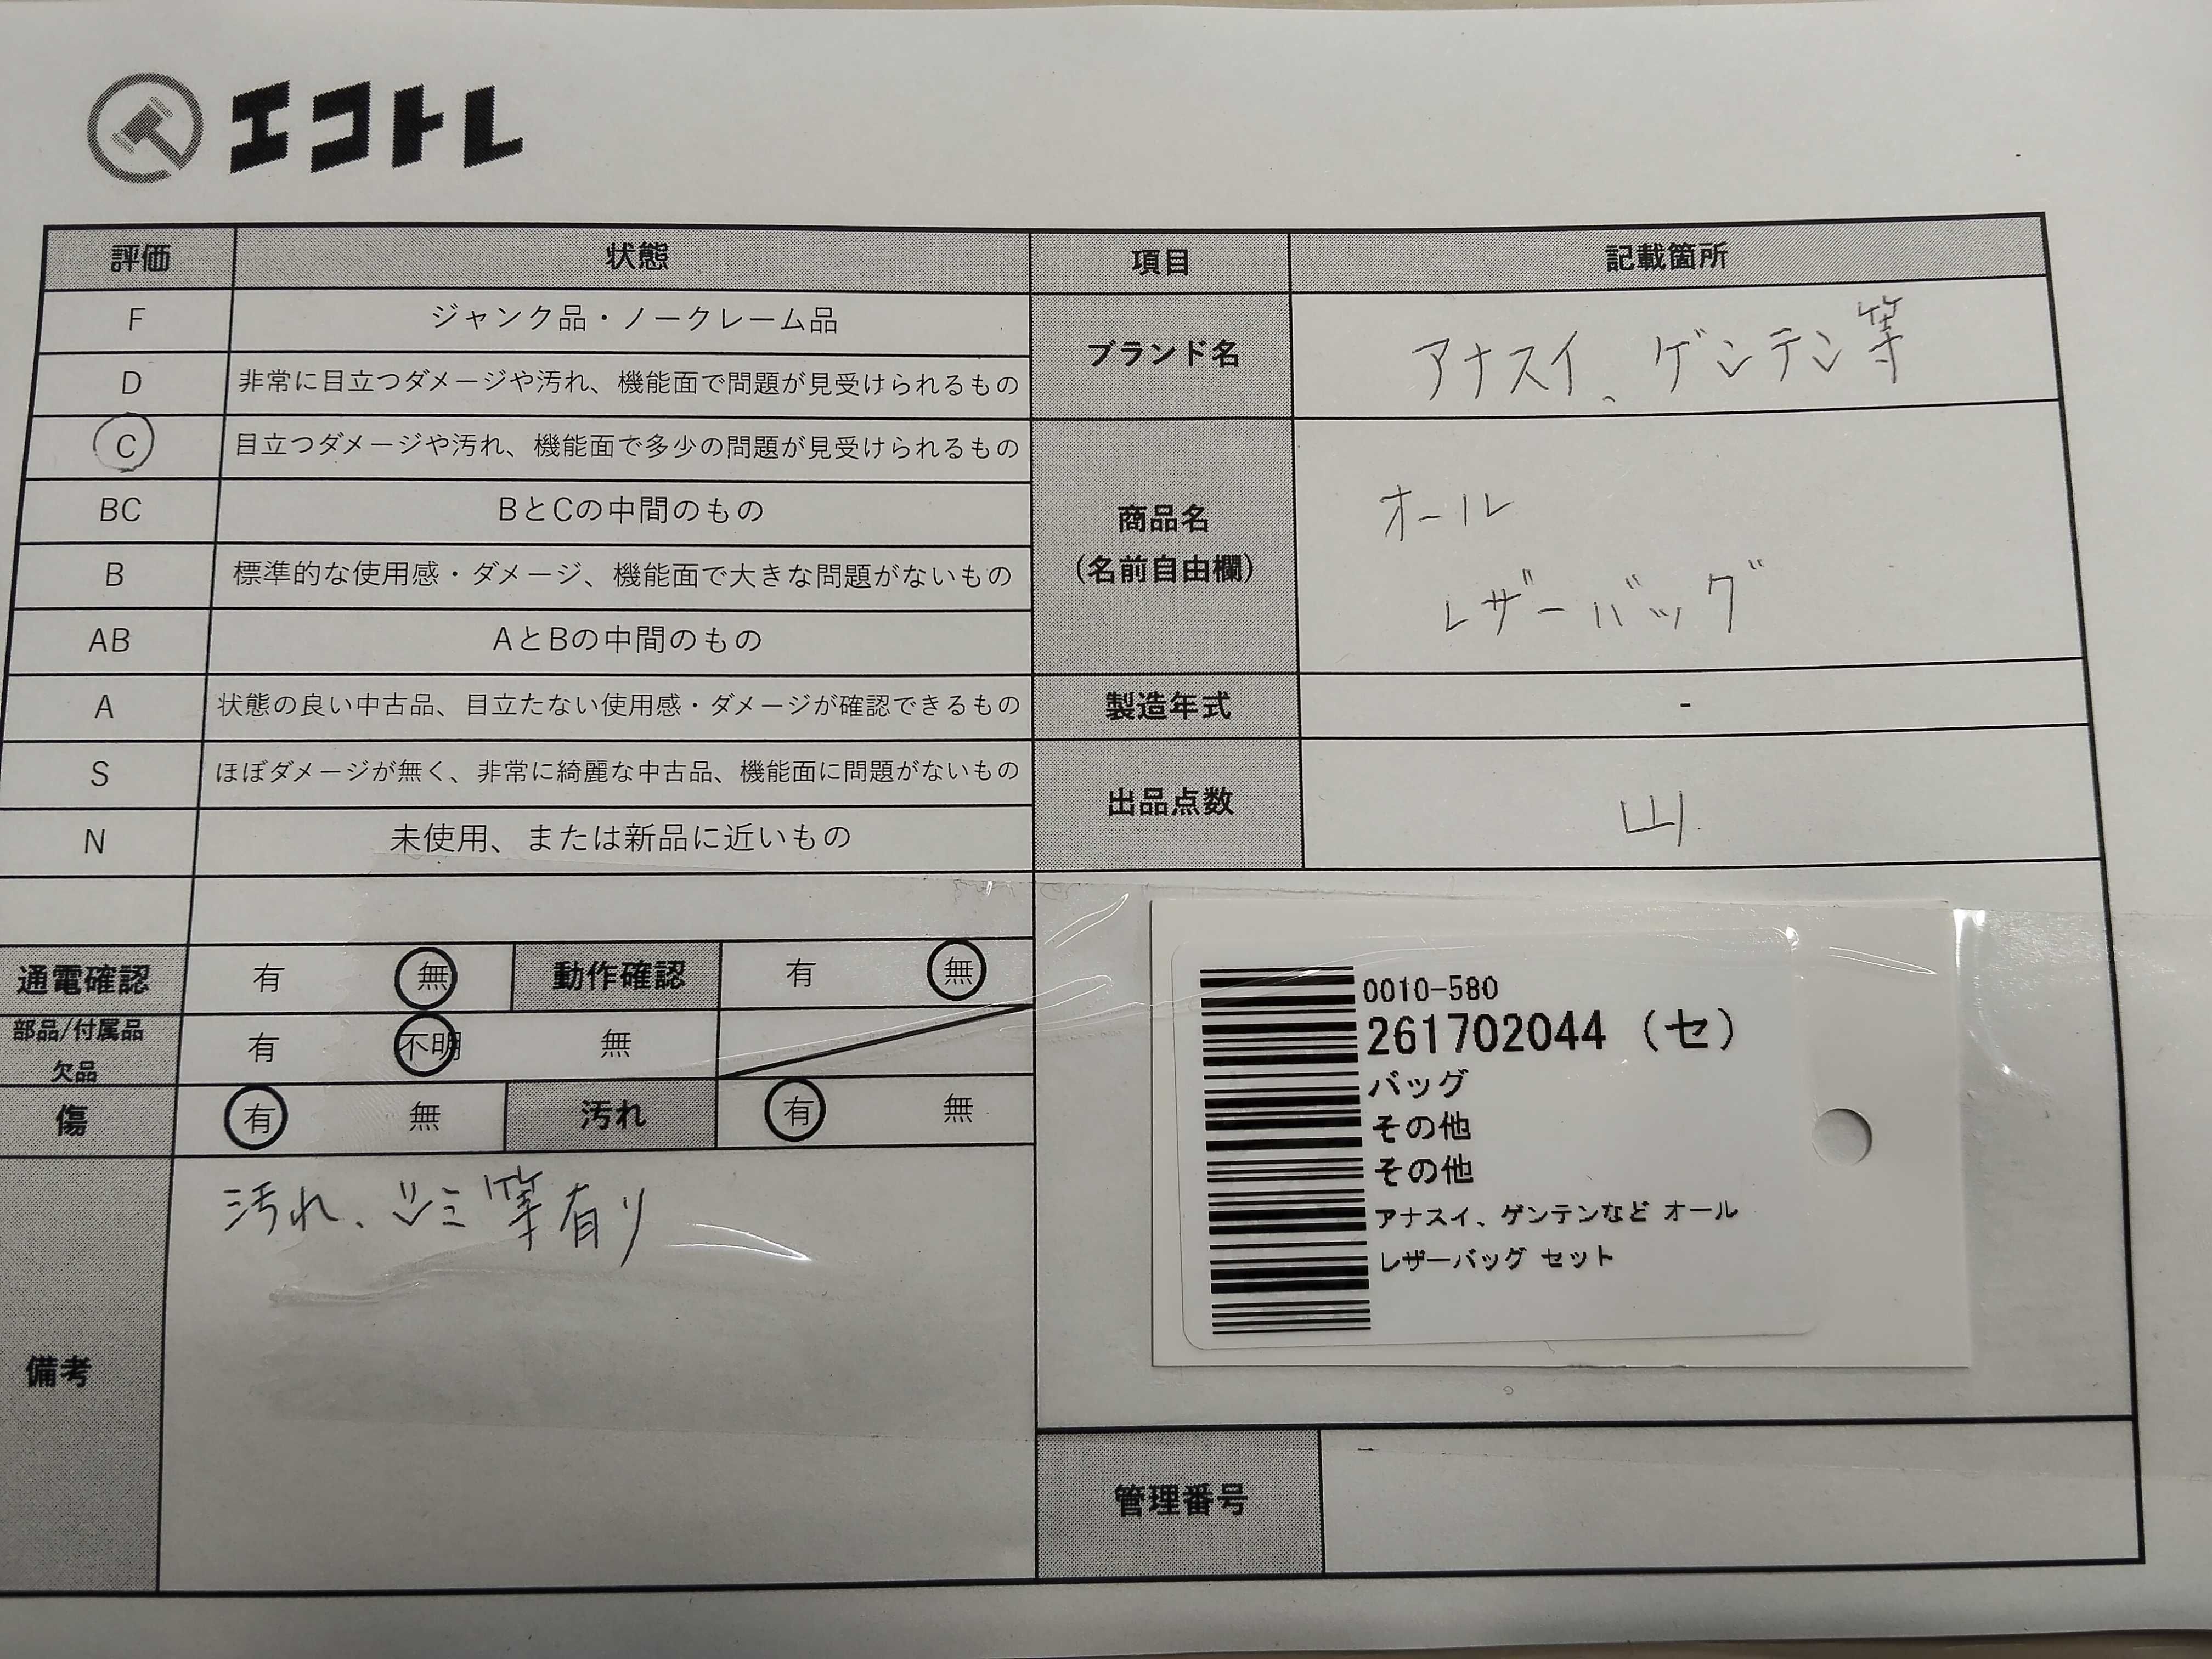 エコトレ
評価 状態 項目 記載箇所
F ジャンク品・ノークレーム品
D 非常に目立つダメージや汚れ、機能面で問題が見受けられるもの
C 目立つダメージや汚れ、機能面で多少の問題が見受けられるもの
BC BとCの中間のもの
B 標準的な使用感・ダメージ、機能面で大きな問題がないもの
AB AとBの中間のもの
A 状態の良い中古品、目立たない使用感・ダメージが確認できるもの
S ほぼダメージが無く、非常に綺麗な中古品、機能面に問題がないもの
N 未使用、または新品に近いもの
ブランド名 アナスイ、ゲンテン等
商品名
(名前自由欄)
オール
レザーバッグ
製造年式 -
出品点数 山
通電確認 有 無 動作確認 有 無
部品/付属品
欠品
有 不明 無
傷 有 無 汚れ 有 無
備考
汚れ、シミ等有り
0010-580
261702044 (セ)
バッグ
その他
その他
アナスイ、ゲンテンなど オール
レザーバッグ セット
管理番号